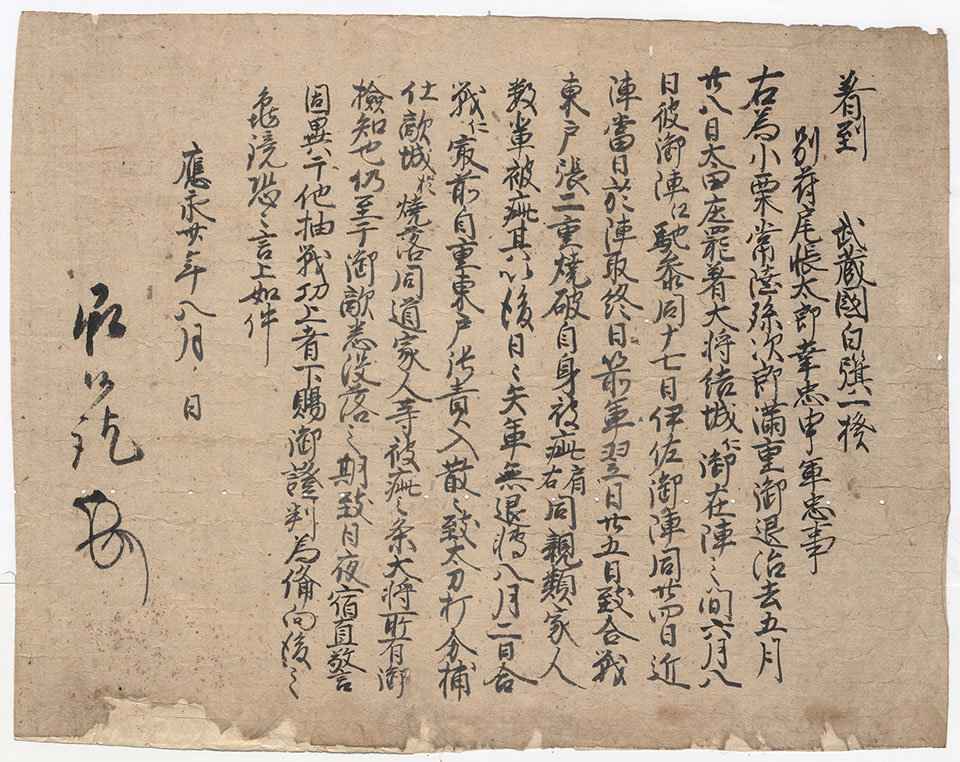 著到　　武蔵國白旗一揆
別苻尾張太郎幸忠申軍忠事
右為小栗常陸孫次郎滿重御退治去五月
廿八日太田庄罷着大将結城仁御在陣之間六月八
日彼御陣江馳参同十七日伊佐御陣同廿四日近
陣當日於陣取終日箭軍翌日廿五日致合戦
東戸張二重焼破自身被疵肩右同親類家人
数輩被疵其以後日々矢軍無退轉八月二日合
戦仁最前自重東戸張責入散々致太刀打分捕
仕敵城於焼落同道家人等被疵之条大将所有御
檢知也仍至于御敵悉没落之期致日夜宿直警
固異于他抽戦功上者下賜御證判為備向後之
亀鏡恐々言上如件
應永卅年八月　日
承了